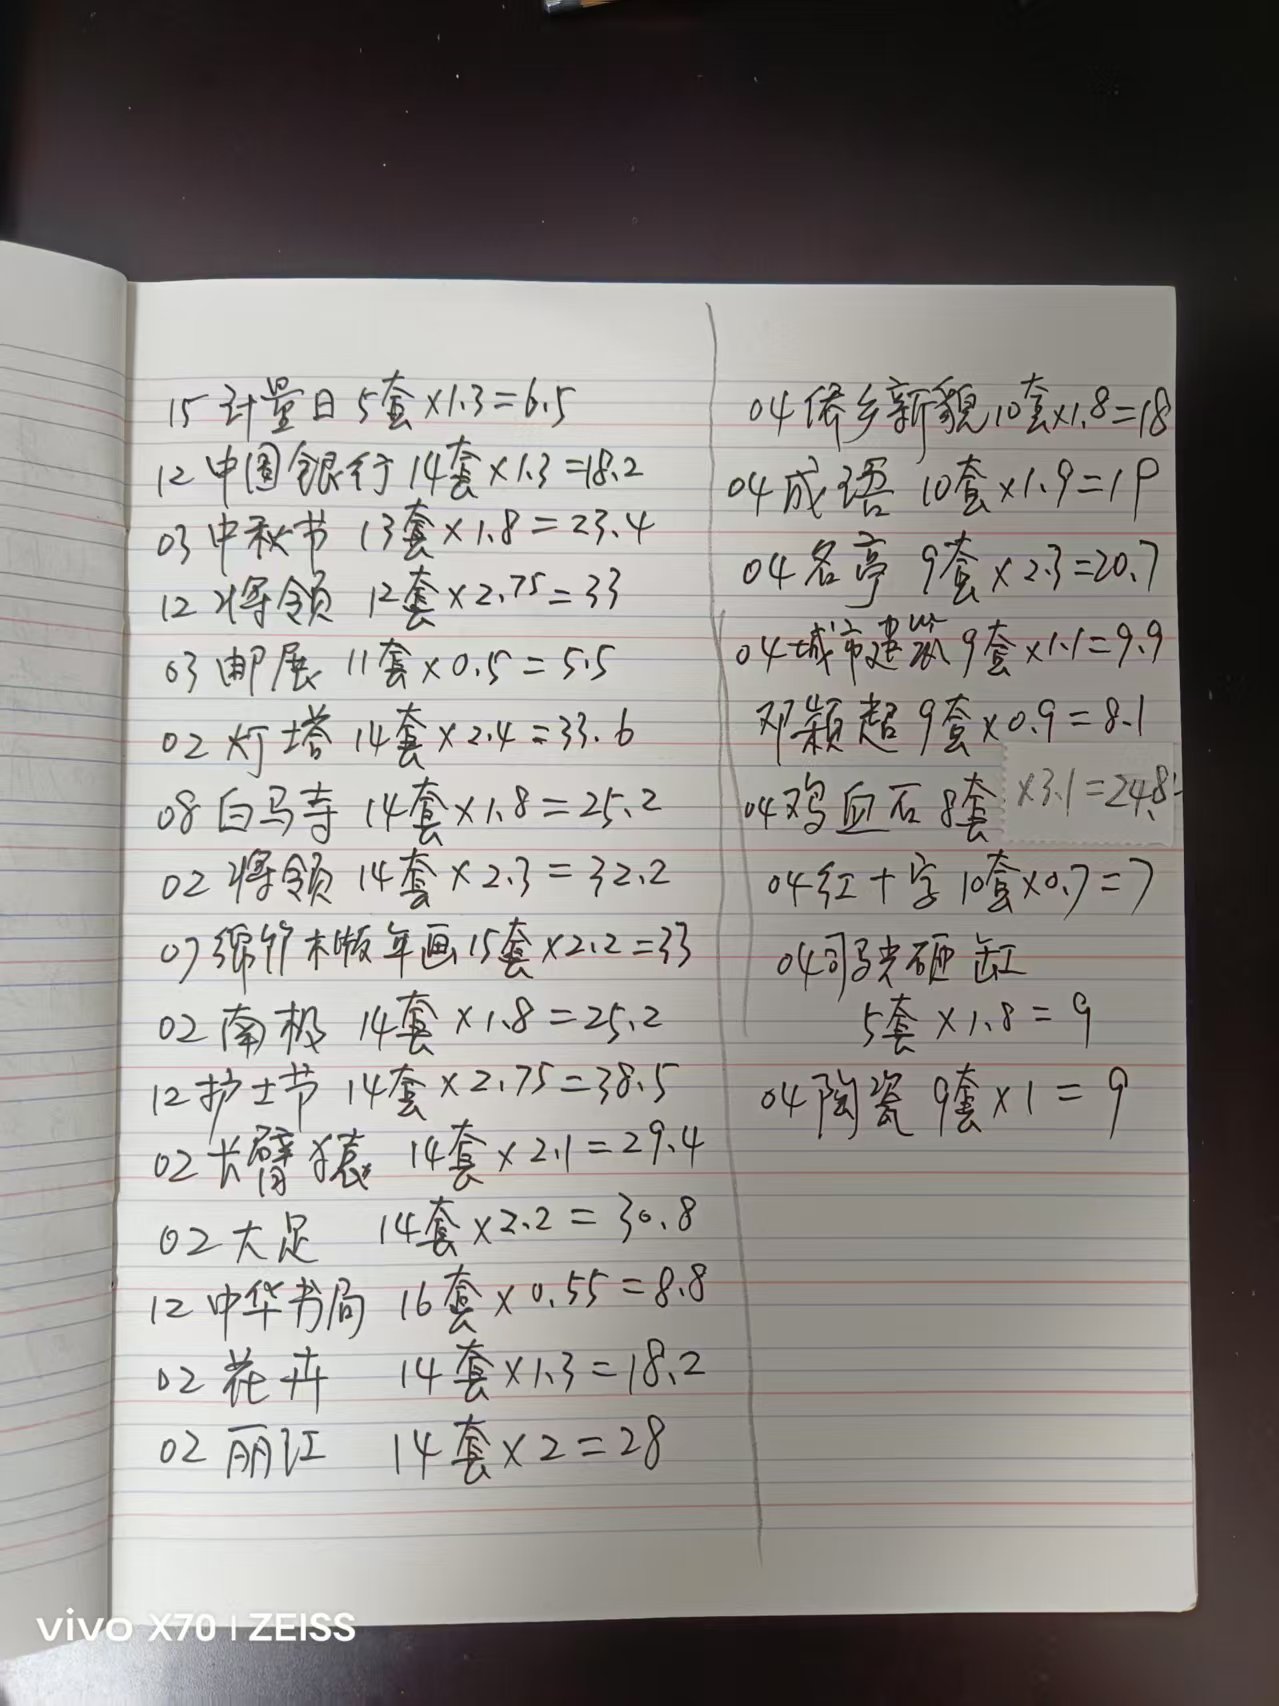 15计量日 5套×1.3=6.5
12中国銀行 14套×1.3=18.2
03中秋节 13套×1.8=23.4
12将领 12套×2.75=33
03邮展 11套×0.5=5.5
02灯塔 14套×2.4=33.6
08白马寺 14套×1.8=25.2
02将领 14套×2.3=32.2
07绵竹木版年画15套×2.2=33
02南极 14套×1.8=25.2
12护士节 14套×2.75=38.5
02长臂猿 14套×2.1=29.4
02大足 14套×2.2=30.8
12中华书局 16套×0.55=8.8
02花卉 14套×1.3=18.2
02丽江 14套×2=28
04侨乡新貌10套×1.8=18
04成语 10套×1.9=19
04名亭 9套×2.3=20.7
04城市建筑9套×1.1=9.9
邓颖超 9套×0.9=8.1
04鸡血石 8套×3.1=24.8
04红十字10套×0.7=7
04司马光砸缸
5套×1.8=9
04陶瓷 9套×1=9
vivo X70 | ZEISS